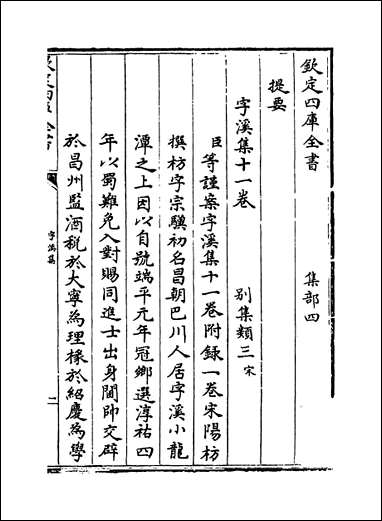 欽定四庫全書 集部四
提要
字溪集十一卷 別集類三 宋
臣等謹案字溪集十一卷附録一卷宋陽枋
撰枋字宗驥初名昌朝巴川人居字溪小龍
潭之上因以自號端平元年冠鄉選淳祐四
年以蜀難免入對賜同進士出身閫帥交辟
於昌州監酒税於大寧為理掾於紹慶為學
字溪集